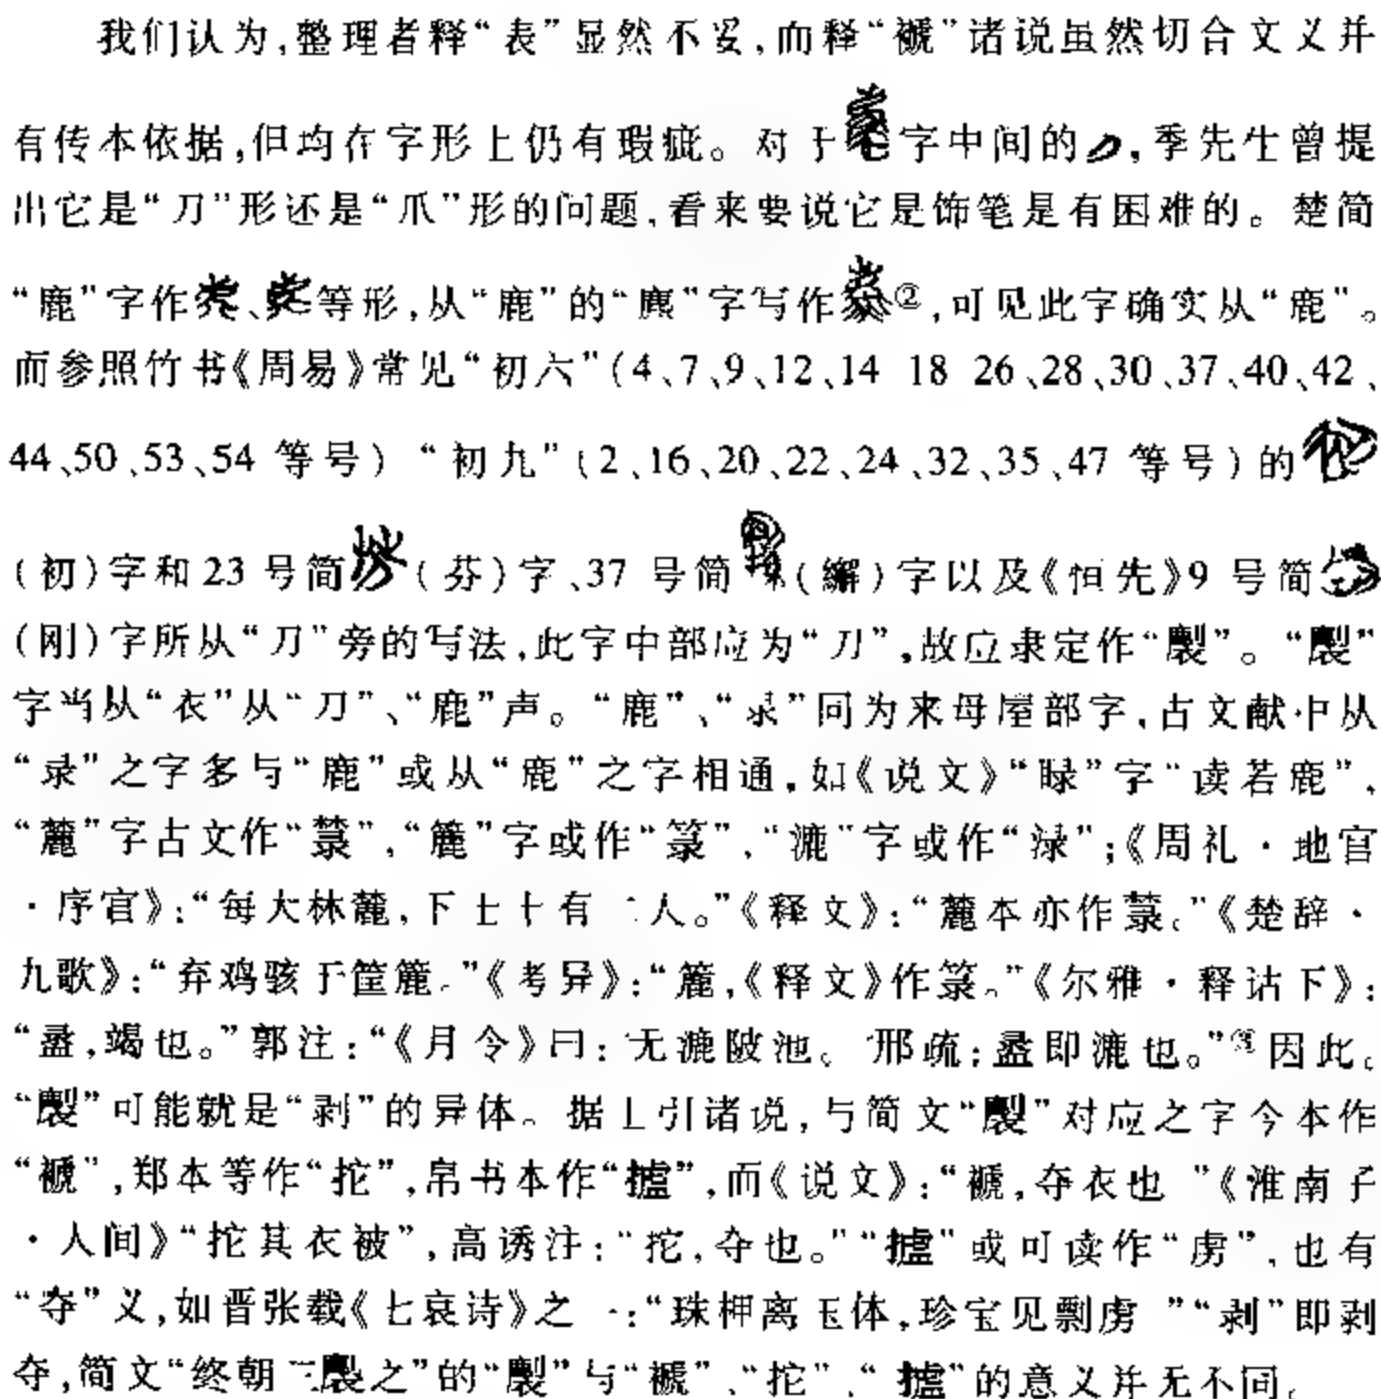 我们认为,整理者释“表”显然不妥,而释“褫”诸说虽然切合文义并
有传本依据,但均在字形上仍有瑕疵。对于字中间的,季先生曾提
出它是“刀”形还是“爪”形的问题,看来要说它是饰笔是有困难的。楚简
“鹿”字作、等形,从“鹿”的“麇”字写作②,可见此字确实从“鹿”。
而参照竹书《周易》常见“初六”(4、7、9、12、14 18 26、28、30、37、40、42、
44、50、53、54 等号)“初九”(2、16、20、22、24、32、35、47 等号)的
(初)字和 23 号简(芬)字、37 号简(繲)字以及《恒先》9 号简
(刚)字所从“刀”旁的写法,此字中部应为“刀”,故应隶定作“”。“”
字当从“衣”从“刀”、“鹿”声。“鹿”、“录”同为来母屋部字,古文献中从
“录”之字多与“鹿”或从“鹿”之字相通,如《说文》“睩”字“读若鹿”,
“麓”字古文作“”,“簏”字或作“箓”,“漉”字或作“渌”;《周礼·地官
·序官》:“每大林麓,下士十有二人。”《释文》:“麓本亦作菉。”《楚辞·
九歌》:“弃鸡骇于筐簏。”《考异》:“簏,《释文》作箓。”《尔雅·释诂下》:
“盝,竭也。”郭注:“《月令》曰:无漉陂池。”邢疏:盝即漉也。”③因此,
“”可能就是“剥”的异体。据上引诸说,与简文“”对应之字今本作
“褫”,郑本等作“拕”,帛书本作“”,而《说文》:“褫,夺衣也 ”《淮南子
·人间》“拕其衣被”,高诱注:“拕,夺也。”“”或可读作“虏”,也有
“夺”义,如晋张载《七哀诗》之一:“珠柙离玉体,珍宝见剽虏 ”“剥”即剥
夺,简文“终朝三之”的“”与“褫”、“拕”、“”的意义并无不同。